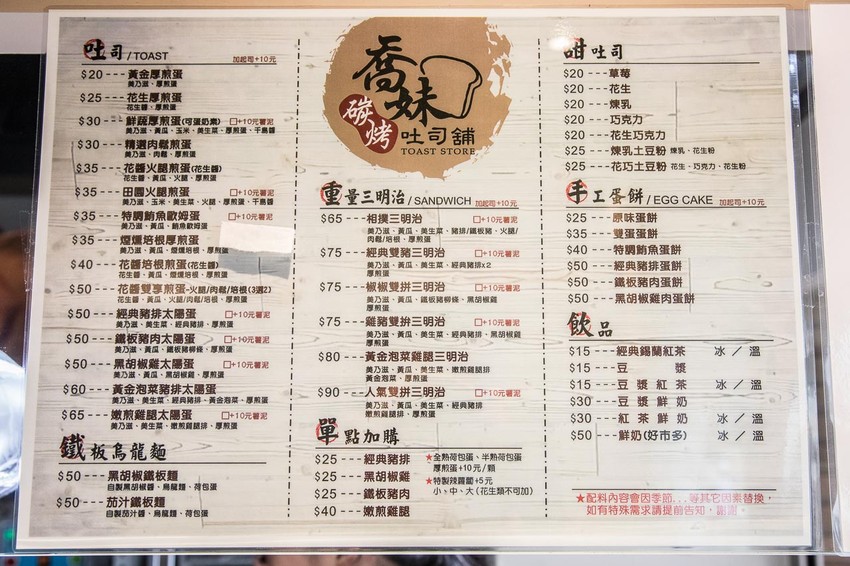 吐司/TOAST 加起司+10元
$20---黃金厚煎蛋
美乃滋、厚煎蛋
$25---花生厚煎蛋
花生醬、厚煎蛋
$30---鮮蔬厚煎蛋(可蛋奶素) □+10元薯泥
美乃滋、黃瓜、玉米、美生菜、厚煎蛋、千島醬
$30---精選肉鬆煎蛋
美乃滋、肉鬆、厚煎蛋
$35---花醬火腿煎蛋(花生醬)
花生醬、黃瓜、火腿、厚煎蛋
$35---田園火腿煎蛋 □+10元薯泥
美乃滋、玉米、美生菜、火腿、厚煎蛋、千島醬
$35---特調鮪魚歐姆蛋 □+10元薯泥
美乃滋、黃瓜、鮪魚歐姆蛋
$35---煙燻培根厚煎蛋
美乃滋、黃瓜、煙燻培根、厚煎蛋
$40---花醬培根煎蛋(花生醬)
花生醬、黃瓜、煙燻培根、厚煎蛋
$50---花醬雙享煎蛋-火腿/肉鬆/培根(3選2)
花生醬、黃瓜、火腿/肉鬆/培根、厚煎蛋
$50---經典豬排太陽蛋 □+10元薯泥
美乃滋、黃瓜、美生菜、經典豬排、厚煎蛋
$50---鐵板豬肉太陽蛋 □+10元薯泥
美乃滋、黃瓜、鐵板豬柳條、厚煎蛋
$50---黑胡椒雞太陽蛋 □+10元薯泥
美乃滋、黃瓜、黑胡椒雞、厚煎蛋
$60---黃金泡菜豬排太陽蛋
美乃滋、黃瓜、美生菜、經典豬排、黃金泡菜、厚煎蛋
$65---嫩煎雞腿太陽蛋 □+10元薯泥
美乃滋、黃瓜、美生菜、嫩煎雞腿排、厚煎蛋
鐵板烏龍麵
$50---黑胡椒鐵板麵
自製黑胡椒醬、烏龍麵、荷包蛋
$50---茄汁鐵板麵
自製茄汁醬、烏龍麵、荷包蛋
喬妹
碳烤
吐司舖
TOAST STORE
重量三明治/SANDWICH 加起司+10元
$65---相撲三明治 □+10元薯泥
美乃滋、黃瓜、美生菜、豬排/鐵板豬、火腿/
肉鬆/培根、厚煎蛋
$75---經典雙豬三明治 □+10元薯泥
美乃滋、黃瓜、美生菜、經典豬排x2
厚煎蛋
$75---椒椒雙拼三明治 □+10元薯泥
美乃滋、黃瓜、鐵板豬柳條、黑胡椒雞
厚煎蛋
$75---雞豬雙拼三明治 □+10元薯泥
美乃滋、黃瓜、美生菜、經典豬排、黑胡椒雞
厚煎蛋
$80---黃金泡菜雞腿三明治
美乃滋、黃瓜、美生菜、嫩煎雞腿排
黃金泡菜、厚煎蛋
$90---人氣雙拼三明治 □+10元薯泥
美乃滋、黃瓜、美生菜、經典豬排
嫩煎雞腿排、厚煎蛋
單點加購
$25---經典豬排
$25---黑胡椒雞
$25---鐵板豬肉
$40---嫩煎雞腿
★全熟荷包蛋、半熟荷包蛋
厚煎蛋+10元/顆
★特製辣蘿蔔+5元
小、中、大(花生類不可加)
甜吐司
$20---草莓
$20---花生
$20---煉乳
$20---巧克力
$20---花生巧克力
$25---煉乳土豆粉 煉乳、花生粉
$25---花巧土豆粉 花生、巧克力、花生粉
手工蛋餅/EGG CAKE 加起司+10元
$25---原味蛋餅
$35---雙蛋蛋餅
$40---特調鮪魚蛋餅
$50---經典豬排蛋餅
$50---鐵板豬肉蛋餅
$50---黑胡椒雞肉蛋餅
飲品
$15---經典錫蘭紅茶 冰/溫
$15---豆漿
$15---豆漿紅茶 冰/溫
$30---豆漿鮮奶
$30---紅茶鮮奶 冰/溫
$50---鮮奶(好市多) 冰/溫
★配料內容會因季節...等其它因素替換，
如有特殊需求請提前告知，謝謝。